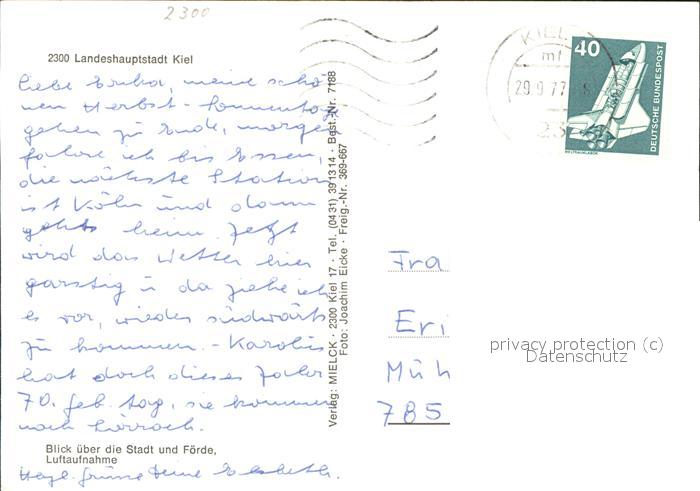 2300
2300 Landeshauptstadt Kiel
liebe Erika, meine schö-
nen Herbst-Sonnentage
gehen zu Ende, morgen
fahre ich bis Essen,
die nächste Station
ist Köln und dann
gehts heim. Jetzt
wird das Wetter hier
garstig u. da ziehe ich
es vor, wieder südwärts
zu kommen. - Karolus
hat doch dieses Jahr
70. Geb. tag, sie kommen
nach Lörrach.
Blick über die Stadt und Förde,
Luftaufnahme
Herzl. Grüsse Deine Elsbeth.
Verlag: MIELCK · 2300 Kiel 17 · Tel. (0431) 391314 · Best.-Nr. 7188
Foto: Joachim Eicke · Freig.-Nr. 369-667
KIEL
mf
29.9.77
23
40
DEUTSCHE BUNDESPOST
WELTRAUMLABOR
Fra
Eri
Müh
785
privacy protection (c)
Datenschutz